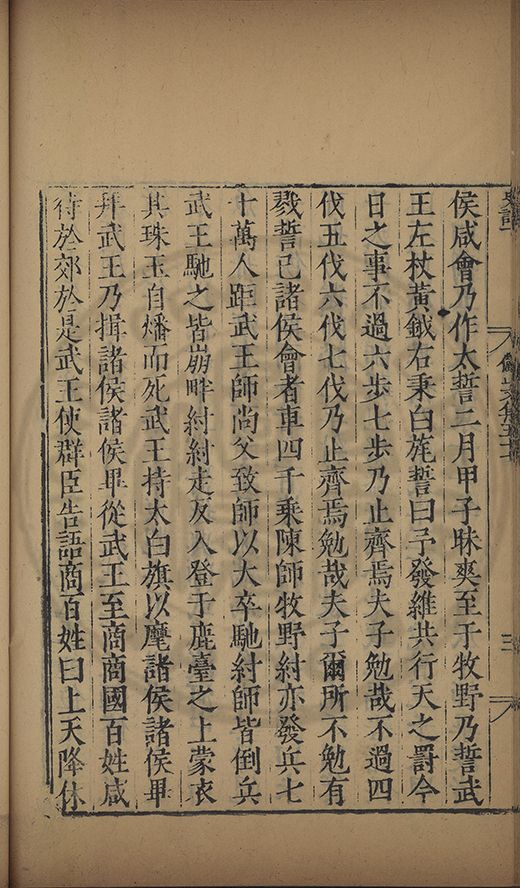 侯咸會乃作太誓二月甲子昧爽至于牧野乃誓武
王左杖黃鉞右秉白旄誓曰予發維共行天之罰今
日之事不過六步七步乃止齊焉夫子勉哉不過四
伐五伐六伐七伐乃止齊焉勉哉夫子爾所不勉有
戮誓已諸侯會者車四千乘陳師牧野紂亦發兵七
十萬人距武王師尚父致師以大卒馳紂師皆倒兵
武王馳之皆崩畔紂紂走反入登于鹿臺之上蒙衣
其珠玉自燔而死武王持太白旗以麾諸侯諸侯畢
拜武王乃揖諸侯諸侯畢從武王至商商國百姓咸
待於郊於是武王使群臣告語商百姓曰上天降休
三